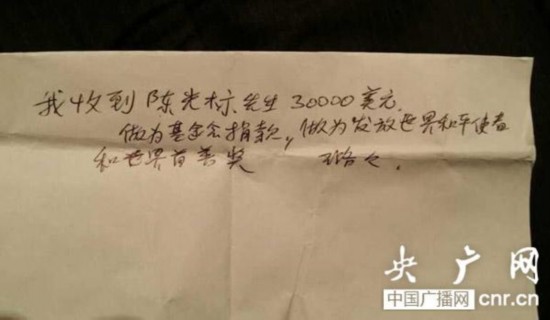 我收到陈光标先生30000美元.
做为基金会捐款,, 做为发放世界和平使者
和世界首善奖
央广网
中国广播网 cnr.cn